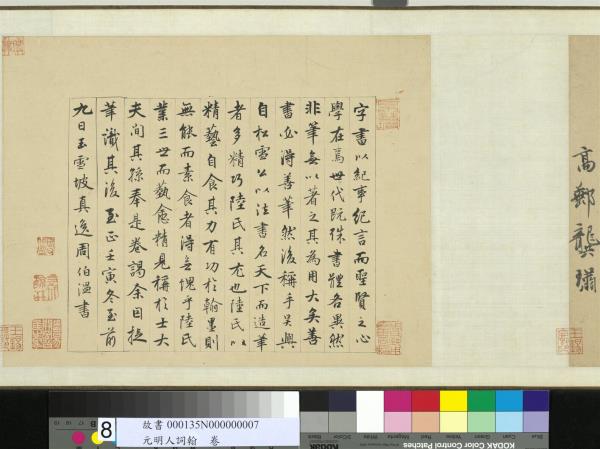 高郵龔璛
字書以紀事紀言而聖賢之心
學在焉世代既殊書體各異然
非筆無以著之其為用大矣善
書必得善筆然後稱乎吳興
自松雪公以法書名天下而造筆
者多精巧陸氏其尤也陸氏以
精藝自食其力有功於翰墨則
無餘而素食者得無愧乎陸氏
業三世而藝愈精見稱於士大
夫間其孫奉是卷謁余因援
筆識其後至正壬寅冬至前
九日玉雪坡真逸周伯溫書
8
故書 000135N000000007
元明人詞翰 卷
Blue
Cyan
Green
Yellow
Red
Magenta
White
3/Color
Black
KODAK Color Control Patches